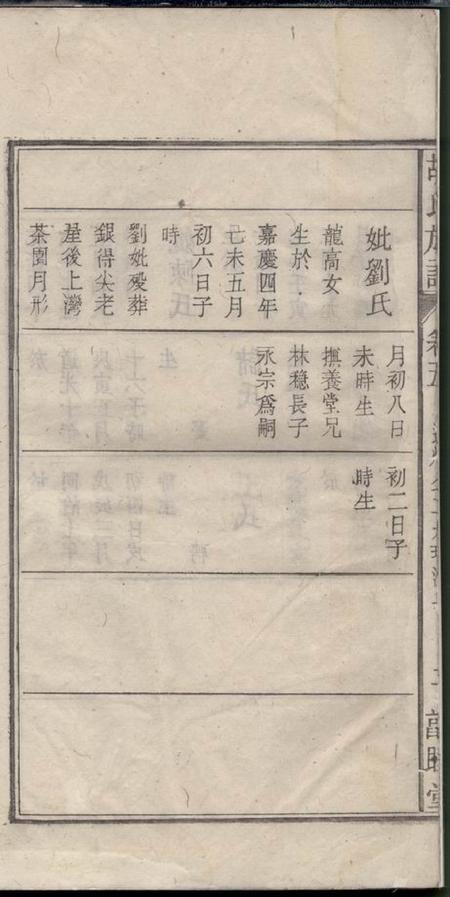 胡氏族譜
卷五
妣劉氏
龍高女
生於
嘉慶四年
七未五月
初六日子
時
劉妣歿葬
銀得尖老
屋後上灣
茶園月形
月初八日
未時生
撫養堂兄
林穩長子
永宗爲嗣
初二日子
時生